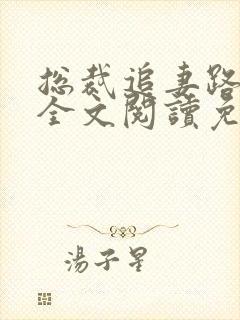 总裁追妻路
全文閱讀免
湯子星